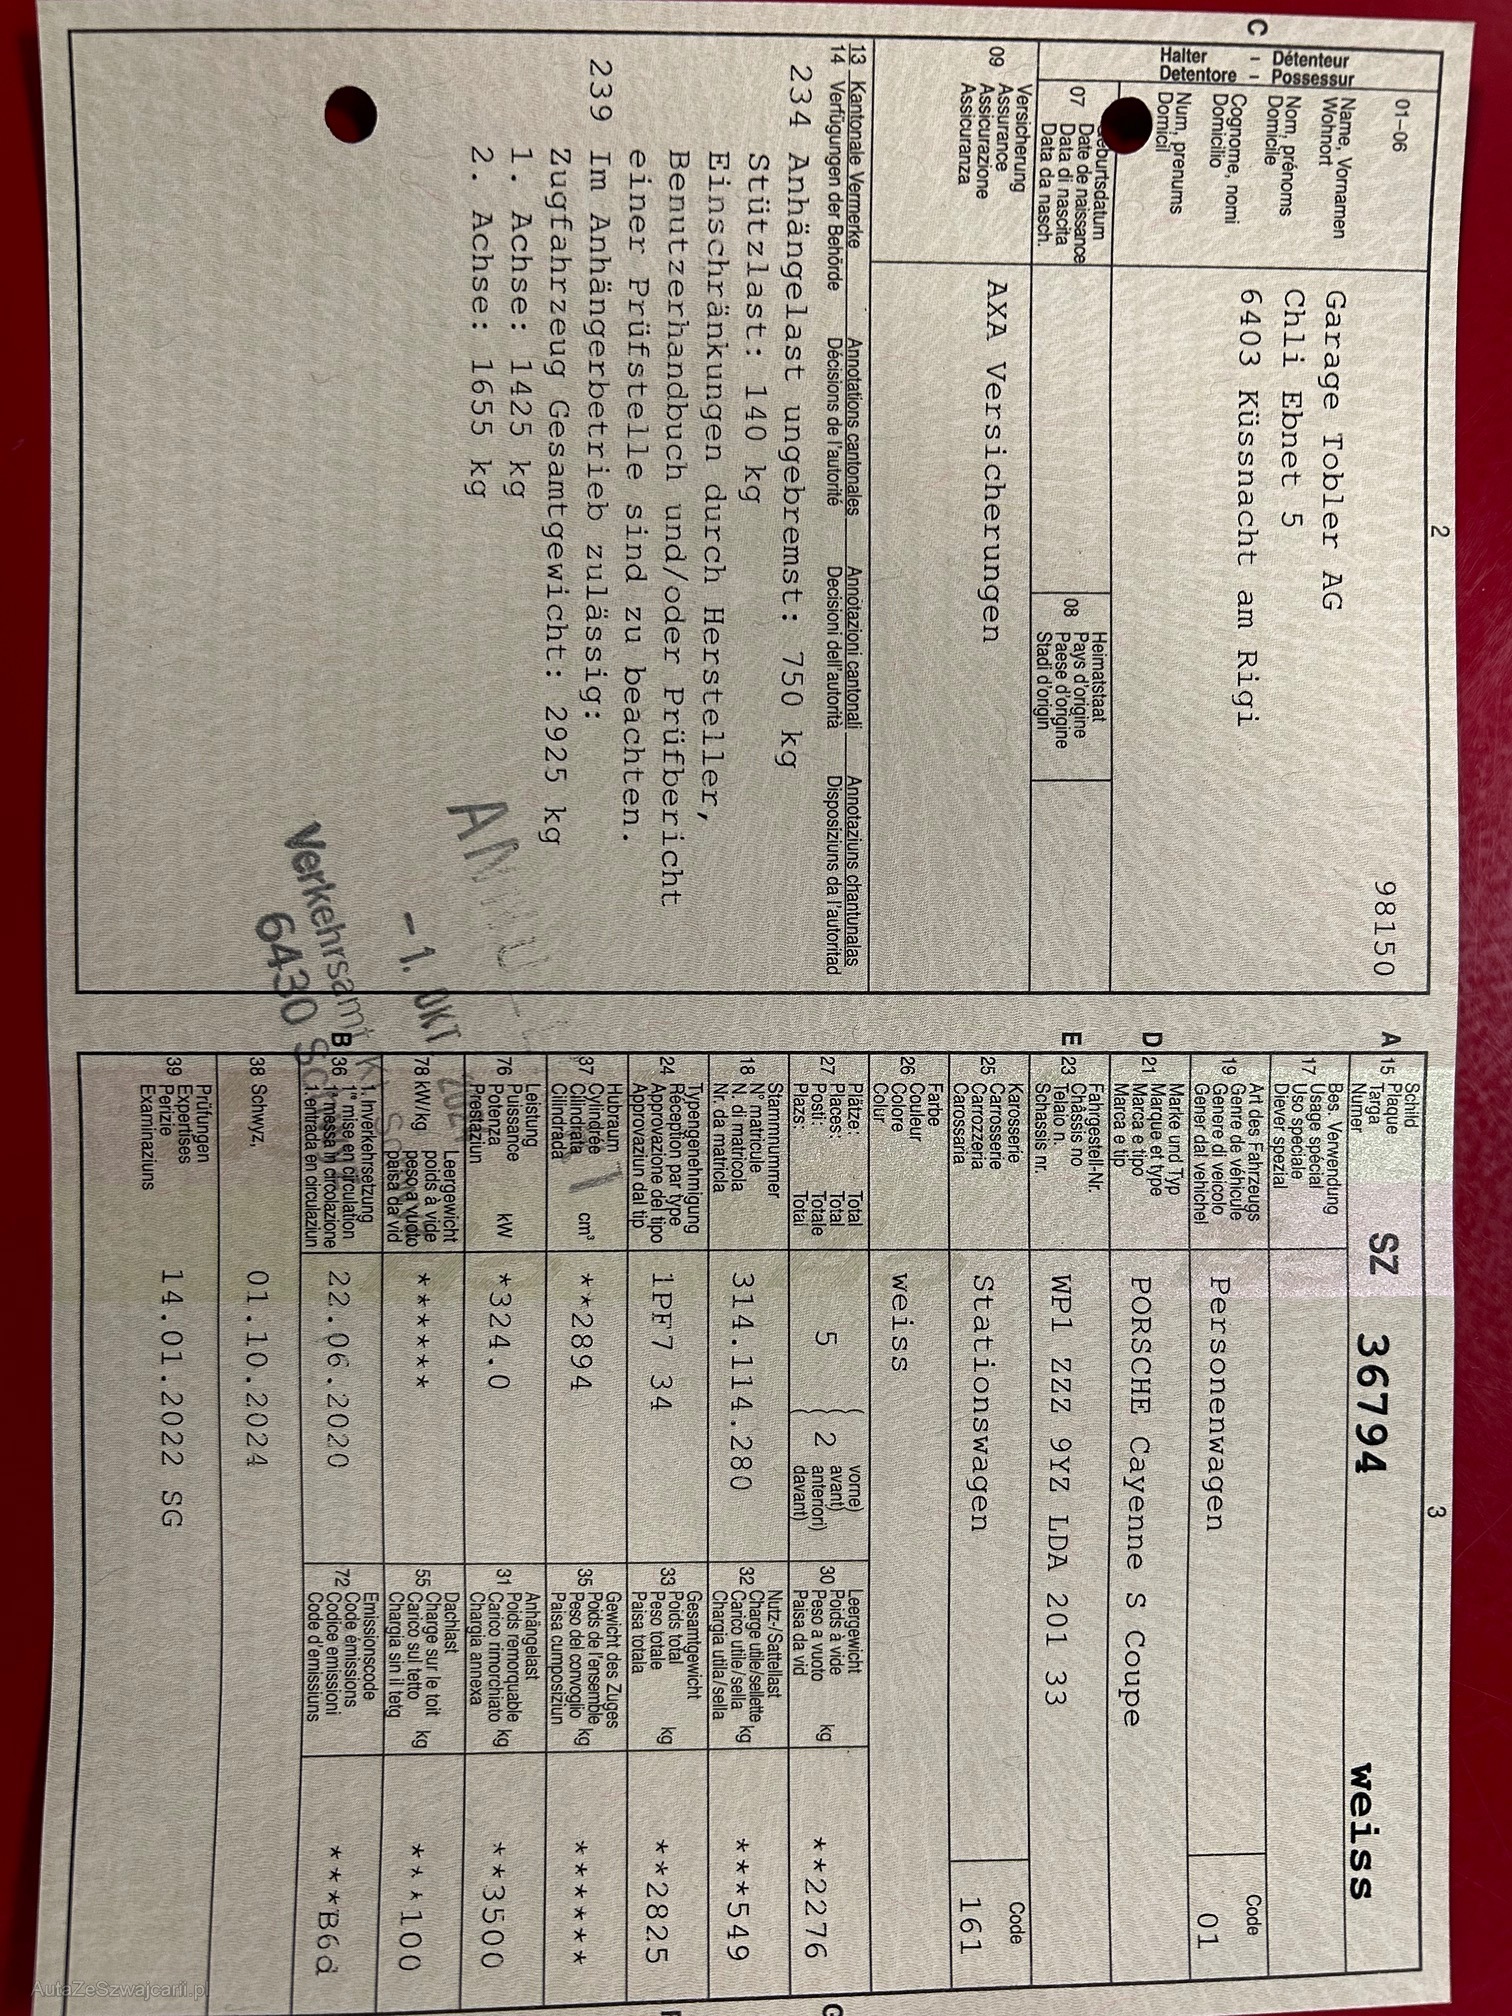 2
01-06
98150
C
Halter - Détenteur
Detentore - Possessur
Name, Vornamen
Wohnort
Nom, prénoms
Domicile
Cognome, nomi
Domicilio
Num, prenums
Domicil
Garage Tobler AG
Chli Ebnet 5
6403 Küssnacht am Rigi
07
Date de naissance
Data di nascita
Data da nasch.
08
Heimatstaat
Pays d'origine
Paese d'origine
Stadi d'origin
09
Versicherung
Assurance
Assicurazione
Assicuranza
AXA Versicherungen
13 Kantonale Vermerke Annotations cantonales Annotazioni cantonali Annotaziuns chantunalas
14 Verfügungen der Behörde Décisions de l'autorité Decisioni dell'autorità Disposiziuns da l'autoritad
234 Anhängelast ungebremst: 750 kg
Stützlast: 140 kg
Einschränkungen durch Hersteller,
Benutzerhandbuch und/oder Prüfbericht
einer Prüfstelle sind zu beachten.
239 Im Anhängerbetrieb zulässig:
Zugfahrzeug Gesamtgewicht: 2925 kg
1. Achse: 1425 kg
2. Achse: 1655 kg
-1. OKT
Verkehrsamt
6430
3
A 15
Schild
Plaque
Targa
Numer
SZ 36794 weiss
17
Bes. Verwendung
Usage spécial
Uso speciale
Diever spezial
19
Art des Fahrzeugs
Genre de véhicule
Genere di veicolo
Gener dal vehichel
Personenwagen
Code
01
D 21
Marke und Typ
Marque et type
Marca e tipo
Marca e tip
PORSCHE Cayenne S Coupe
E 23
Fahrgestell-Nr.
Châssis no
Telaio n.
Schassis nr.
WP1 ZZZ 9YZ LDA 201 33
25
Karosserie
Carrosserie
Carrozzeria
Carossaria
Stationswagen
Code
161
26
Farbe
Couleur
Colore
Colur
weiss
27
Plätze: Total
Places: Total
Posti: Totale
Plazs: Total
5
2
vorne)
avant)
anteriori)
davant)
30
Leergewicht
Poids à vide
Peso a vuoto
Paisa da vid
kg
**2276
18
Stammnummer
N° matricule
N. di matricola
Nr. da matricla
314.114.280
32
Nutz-/Sattellast
Charge utile/sellette
Carico utile/sella
Chargia utila/sella
kg
***549
24
Typengenehmigung
Réception par type
Approvazione del tipo
Approvaziun dal tip
1PF7 34
33
Gesamtgewicht
Poids total
Peso totale
Paisa totala
kg
**2825
37
Hubraum
Cylindrée
Cilindrata
Cilindrada
cm³
**2894
35
Gewicht des Zuges
Poids de l'ensemble
Peso del convoglio
Paisa cumposiziun
kg
******
76
Leistung
Puissance
Potenza
Prestaziun
kW
*324.0
31
Anhängelast
Poids remorquable
Carico rimorchiato
Chargia annexa
kg
**3500
78 kW/kg
Leergewicht
poids à vide
peso a vuoto
paisa da vid
******
55
Dachlast
Charge sur le toit
Carico sul tetto
Chargia sin il tetg
kg
***100
B 36
1. Inverkehrsetzung
1re mise en circulation
1a messa in circolazione
1. entrada en circulaziun
22.06.2020
72
Emissionscode
Code émissions
Codice emissioni
Code d'emissiuns
***B6d
38 Schwyz,
01.10.2024
39
Prüfungen
Expertises
Perizie
Examinaziuns
14.01.2022 SG
G
AutaZeSzwajcarii.pl